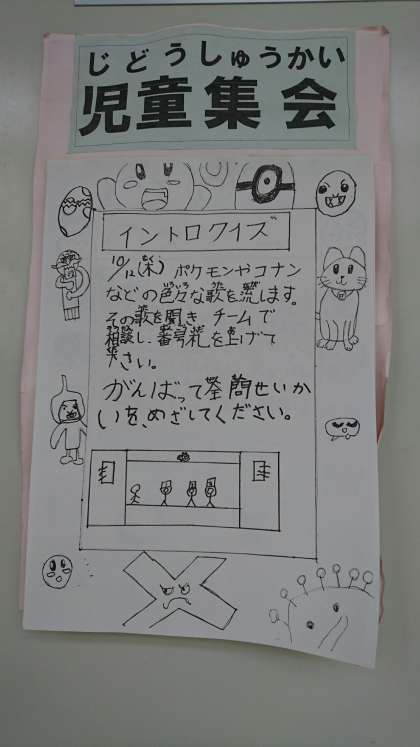 じどうしゅうかい
児童集会
イントロクイズ
10/12(木) ポケモンやコナン
などの色々な歌を流します。
その歌を聞き チームで
相談し、番号札を上げて
下さい。
がんばって全問せいか
いを、めざしてください。